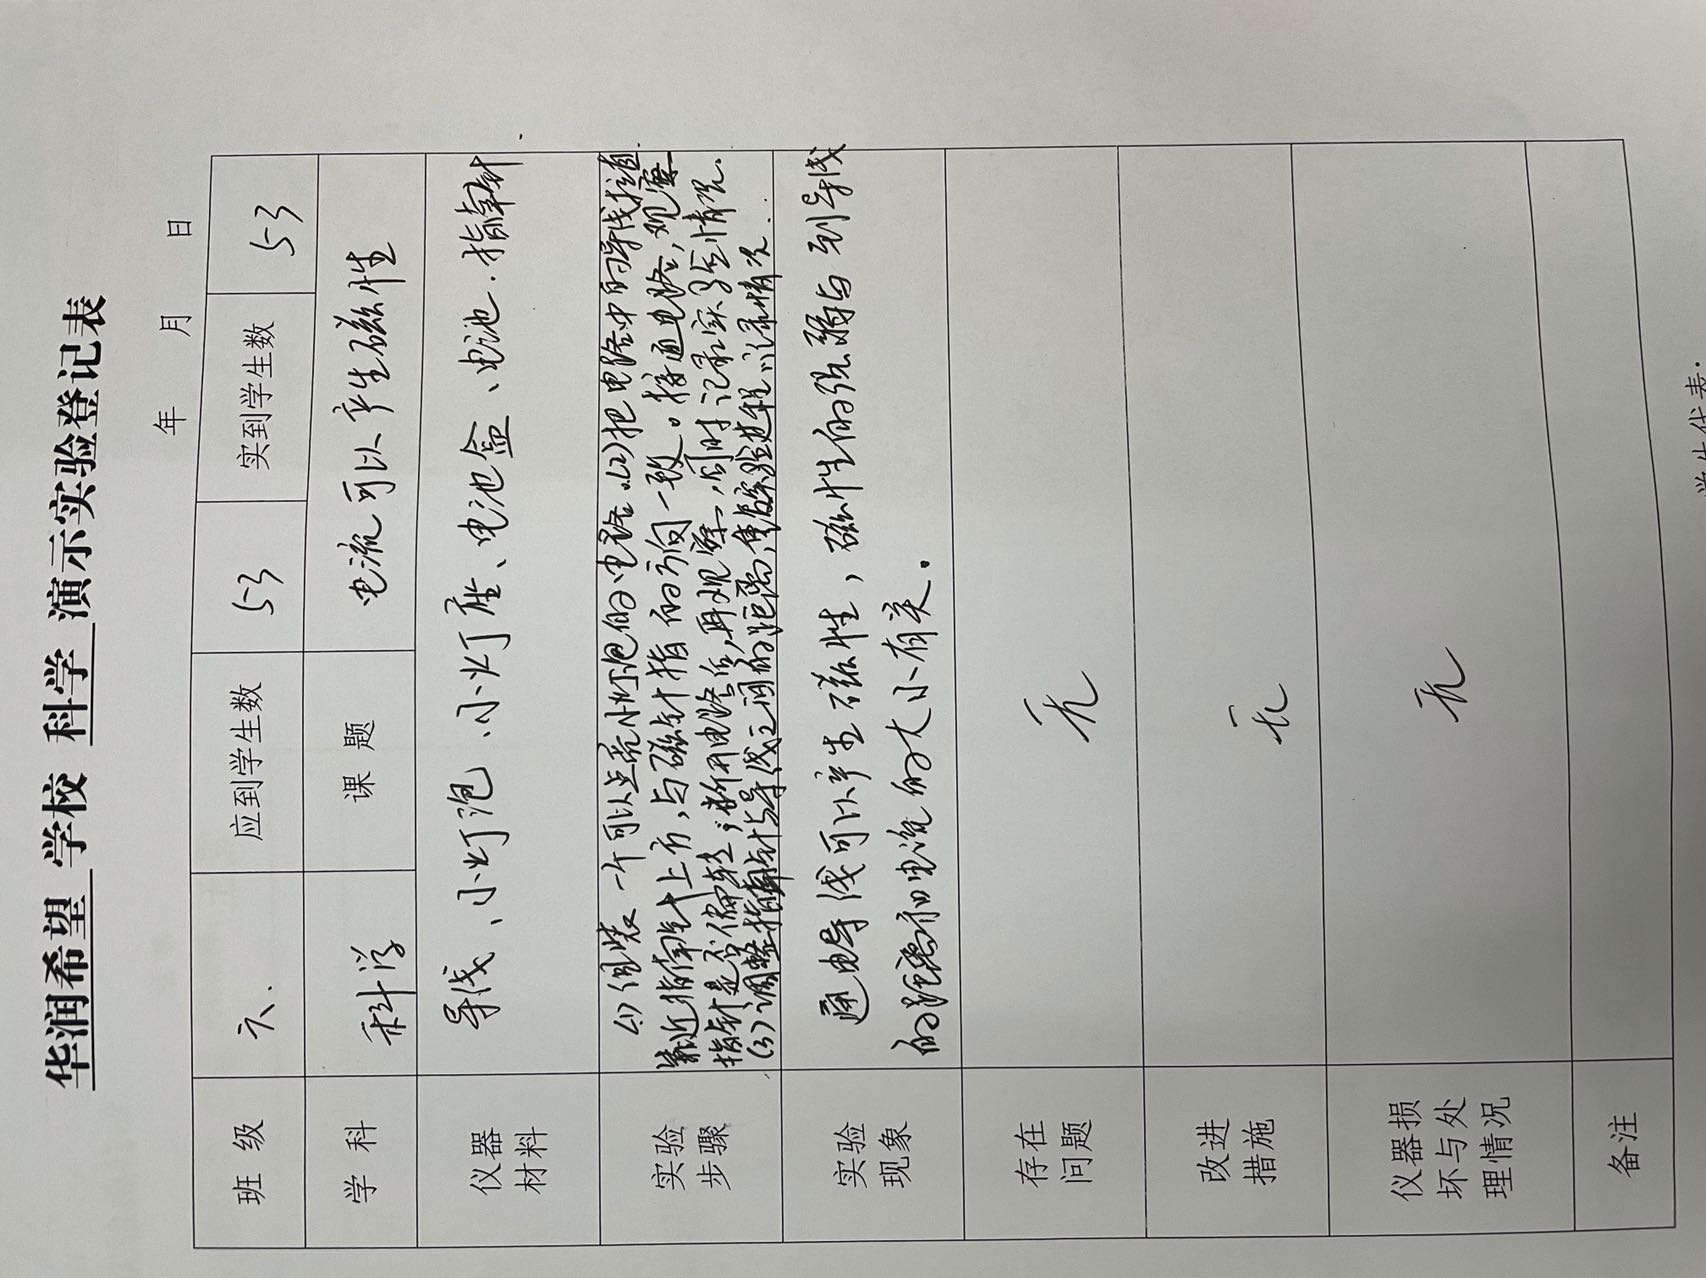 华润希望 学校 科学 演示实验登记表
年 月 日
班 级 六. 应到学生数 53 实到学生数 53
学 科 科学 课 题 电流可以产生磁性
仪器材料 导线、小灯泡、小灯座、电池盒、电池.指南针
实验步骤 (1)组装一个可以点亮小灯泡的电路.(2)把电路中的导线拉直
靠近指南针上方,与磁针指的方向一致。接通电路,观察
指针是否偏转;断开电路后,再观察,同时记录实验情况.
(3)调整指南针与导线之间的距离,重复实验进程,记录情况
实验现象 通电导线可以产生磁性,磁性的强弱与到导线
的距离和电流的大小有关.
存在问题 无
改进措施 无
仪器损坏与处理情况 无
备注
学生代表: